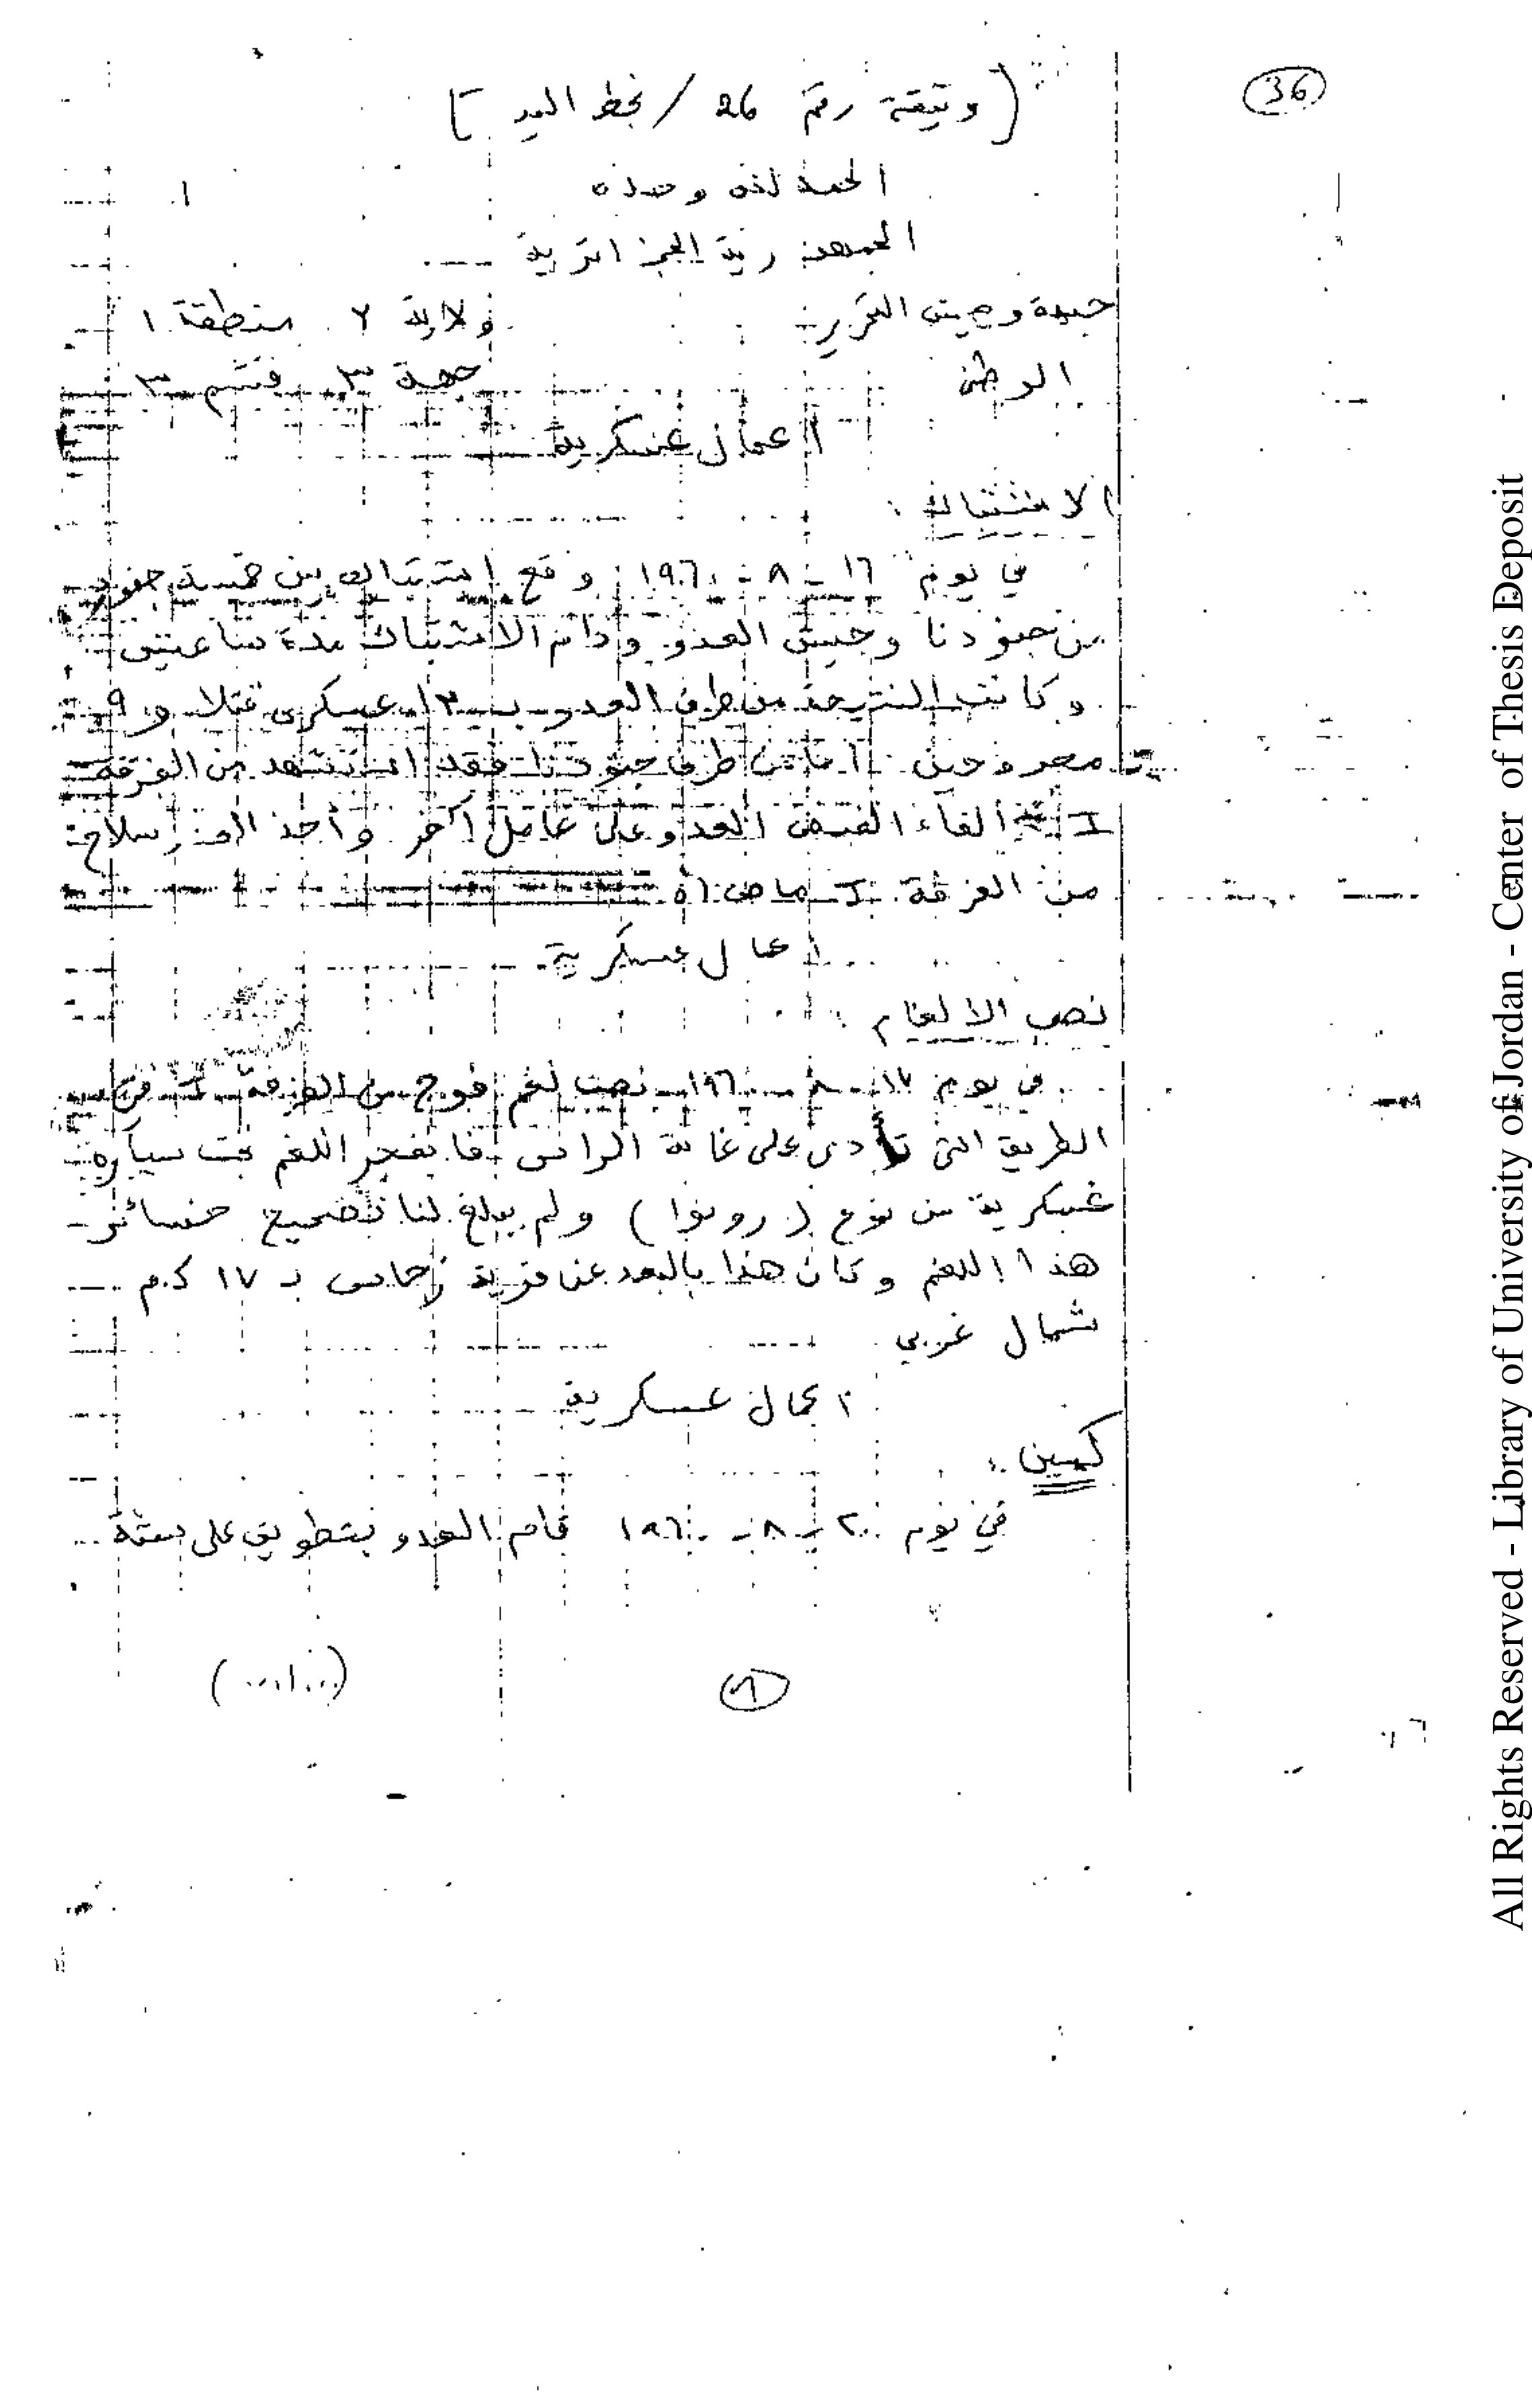 36
(وثيقة رقم 26 / بخط اليد]
الحمد لله وحده
الجمهورية الجزائرية
جبهة وجيش التحرير ولاية ٢ منطقة ١
الوطني جهة ٣ قسم ٣
اعمال عسكرية
الاشتباك :
في يوم ١٦ - ٨ - ١٩٦٠ وقع اشتباك بين خمسة جنود
من جنودنا وجيش العدو ودام الاشتباك مدة ساعتين
وكانت النتيجة من طرف العدو ب ١٣ عسكري قتلا و ٩
مجروحين اما من طرف جنودنا فقد استشهد من الفرقة
I القاء القبض العدو على آخر وأخذ العدو سلاح
من الفرقة I ماص ٥٦
اعمال عسكرية
نصب الالغام
في يوم ١٧ - ٨ - ١٩٦٠ نصب لغم فوج من الفرقة I في
الطريق التي تأدى على غابة الراس فانفجر اللغم تحت سيارة
عسكرية من نوع (رونوا) ولم يبلغ لنا تصحيح خسائر
هذا اللغم وكان هذا بالبعد عن قرية ب ١٧ ك.م
شمال غربي
اعمال عسكرية
كمين :
في يوم ٢٠ - ٨ - ١٩٦٠ قام العدو بتطويق على ستة
١
(.....)
All Rights Reserved - Library of University of Jordan - Center of Thesis Deposit